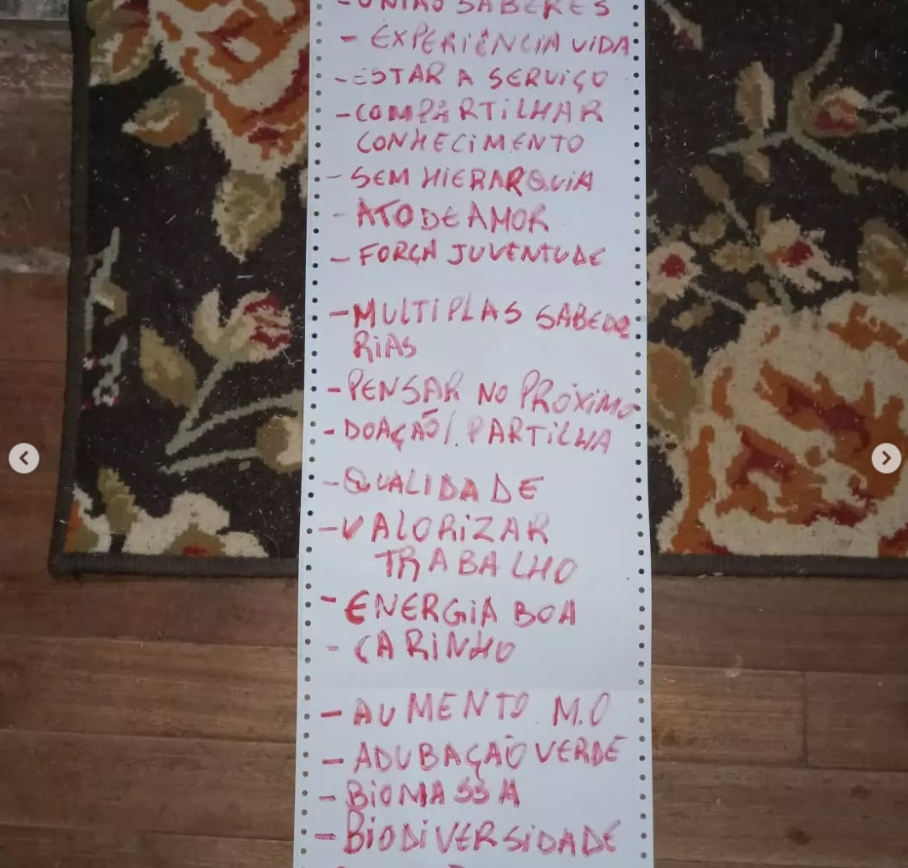 - UNIÃO SABERES
- EXPERIÊNCIA VIDA
- ESTAR A SERVIÇO
- COMPARTILHAR
CONHECIMENTO
- SEM HIERARQUIA
- ATO DE AMOR
- FORÇA JUVENTUDE
- MULTIPLAS SABEDO
RIAS
- PENSAR NO PRÓXIMO
- DOAÇÃO/. PARTILHA
- QUALIDADE
- VALORIZAR
TRABALHO
- ENERGIA BOA
- CARINHO
- AUMENTO M.O
- ADUBAÇÃO VERDE
- BIOMASSA
- BIODIVERSIDADE